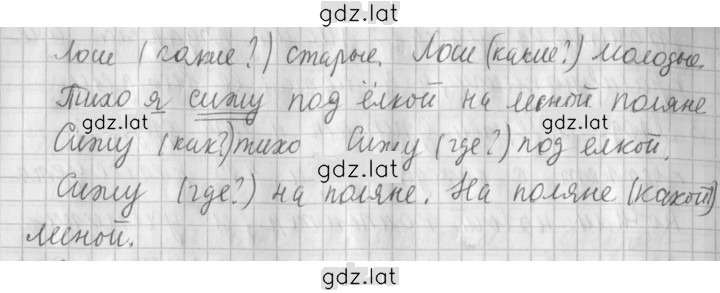 gdz.lat
Лоси (какие?) старые. Лоси (какие?) молодые.
Тихо я сижу под ёлкой на лесной поляне
gdz.lat gdz.lat
Сижу (как?) тихо Сижу (где?) под елкой.
gdz.lat
Сижу (где?) на поляне. На поляне (какой?)
лесной.
gdz.lat